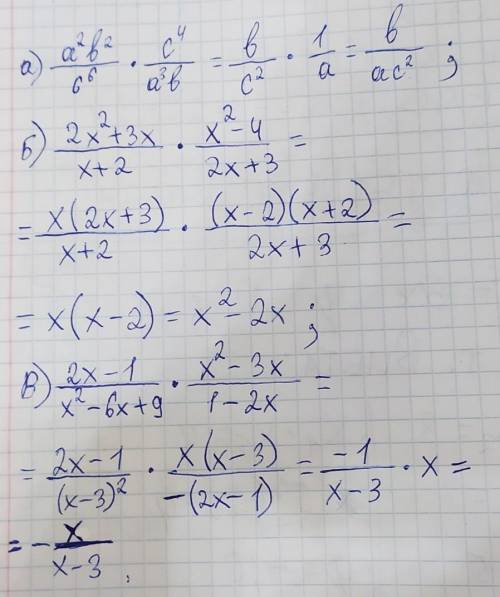 а) a²b²/c⁶ · c⁴/a³b = b/c² · 1/a = b/ac² ;
б) (2x²+3x)/(x+2) · (x²-4)/(2x+3) =
= x(2x+3)/(x+2) · (x-2)(x+2)/(2x+3) =
= x(x-2) = x²-2x ;
в) (2x-1)/(x²-6x+9) · (x²-3x)/(1-2x) =
= (2x-1)/(x-3)² · x(x-3)/-(2x-1) = -1/(x-3) · x =
= - x/(x-3) .